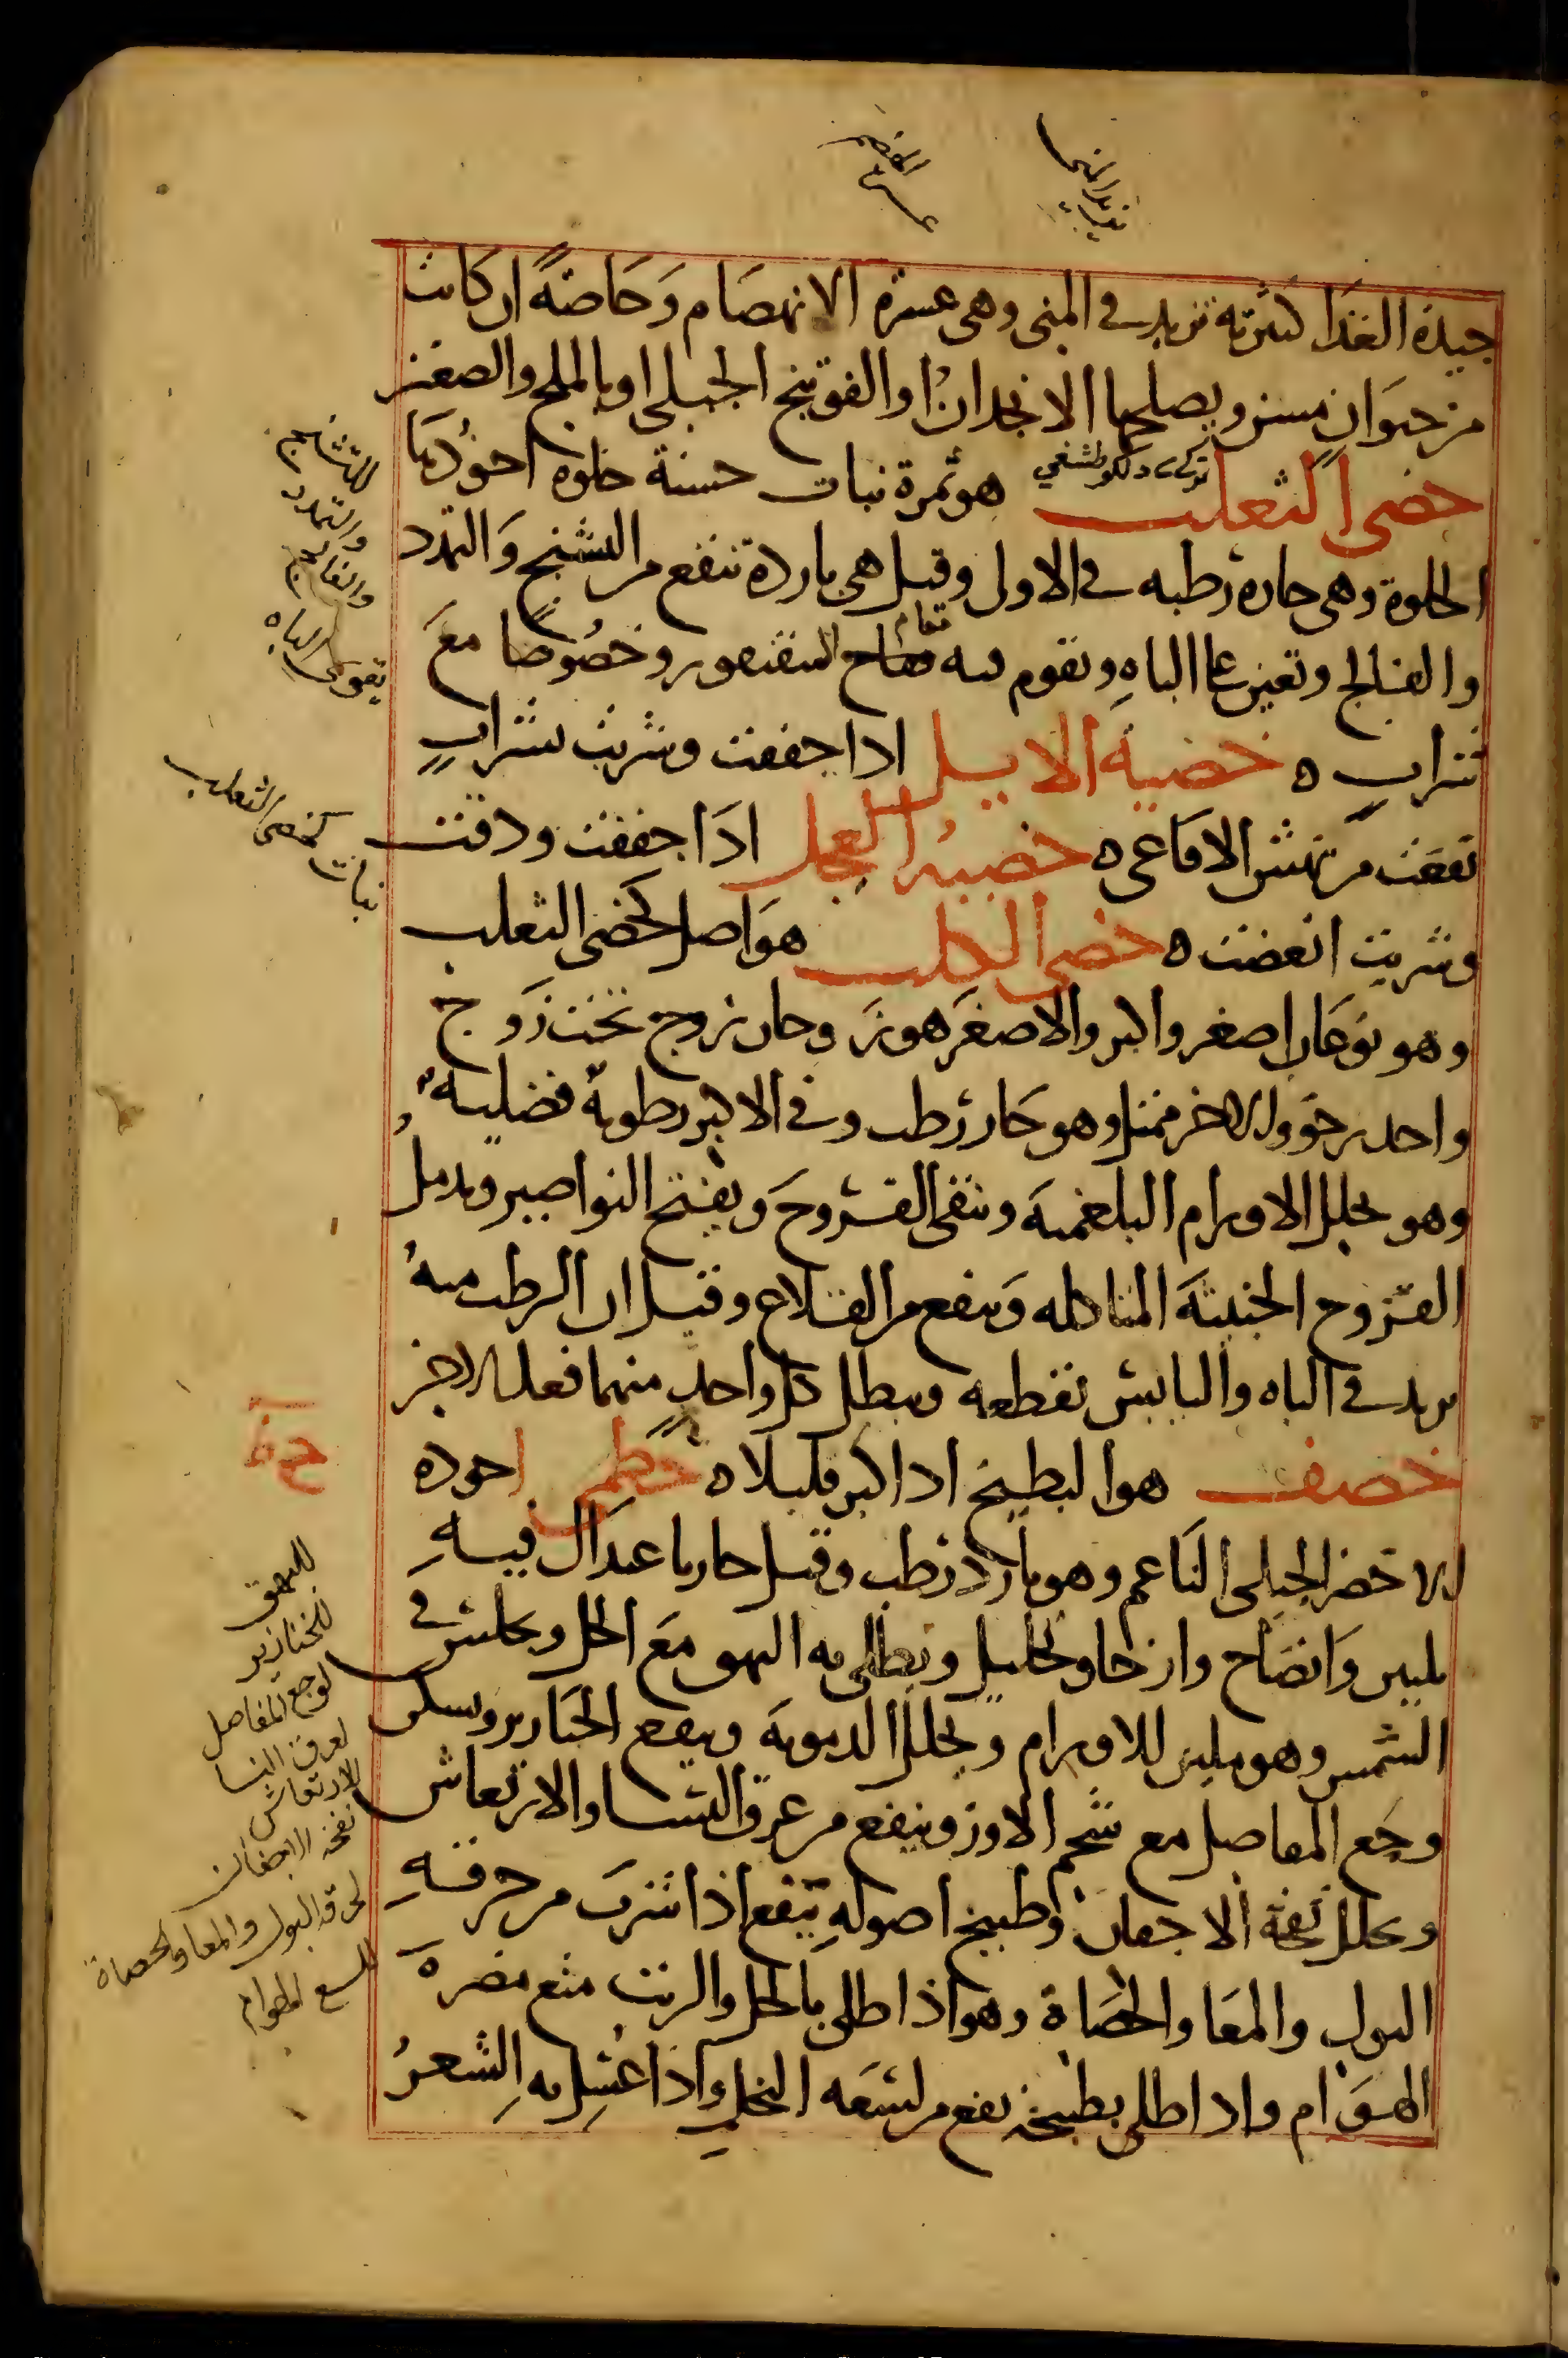 تزيد المنى
عسرة الهضم
جيدة الغذا كثيرته تزيد في المنى وهى عسرة الانهضام وخاصة ان كانت
من حيوان مسن ويصلحها الانجدان او الفوتنج الجبلى او بالملح والصعتر
خصى الثعلب هو ثمرة نبات حسنة حلوه اجودها
الحلوة وهى حارة رطبه في الاولى وقيل هى باردة تنفع من التشنج والتمدد
والفالج وتعين على الباه وتقوم فيه مقام السقنقور وخصوصا مع
شراب ه خصية الايل اذا جففت وشربت بشراب
نفعت من نهش الافاعى ه خصية العجل اذا جففت ودقت
وشربت انعضت ه خصى الكلب هو اصل كخصى الثعلب
وهو نوعان اصغر واكبر والاصغر هو زوجان زوج تحت زوج
واحد رخو والاخر ممتلى وهو حار رطب وفى الاكبر رطوبة فضلية
وهو يحلل الاورام البلغمية وينقى القروح ويفتح النواصير ويدمل
القروح الخبيثة المتاكله وينفع من القلاع وقيل ان الرطب منه
يزيد في الباه واليابس يقطعه ويبطل كل واحد منهما فعل الاخر
خصف هو البطيخ اذا كبر قليلا ه خطمى اجوده
الاخضر الجبلى الناعم وهو بارد رطب وقيل حار باعتدال فيه
تليين وانضاج وارخا وتحليل ويطلى به البهق مع الخل ويجلس في
الشمس وهو يلين للاورام ويحلل الدموية وينفع الخنازير ويسكن
وجع المفاصل مع شحم الاوز وينفع من عرق النسا والارتعاش
ويحلل نفخة الاجفان وطبيخ اصوله ينفع اذا شرب من حرقة
البول والمعا والحصاة وهو اذا طلى بالخل والزيت منع مضرة
الهوام واذا طلى بطبيخه نفع من لسعه النحل واذا غسل به الشعر
للتشنج
والتمدد
والفالج
يقوى الباه
نبات كخصى الثعلب
للبهق
للخنازير
لوجع المفاصل
لعرق النسا
الارتعاش
نفخه الاجفان
لحرقة البول والمعا والحصاة
للسع الهوام